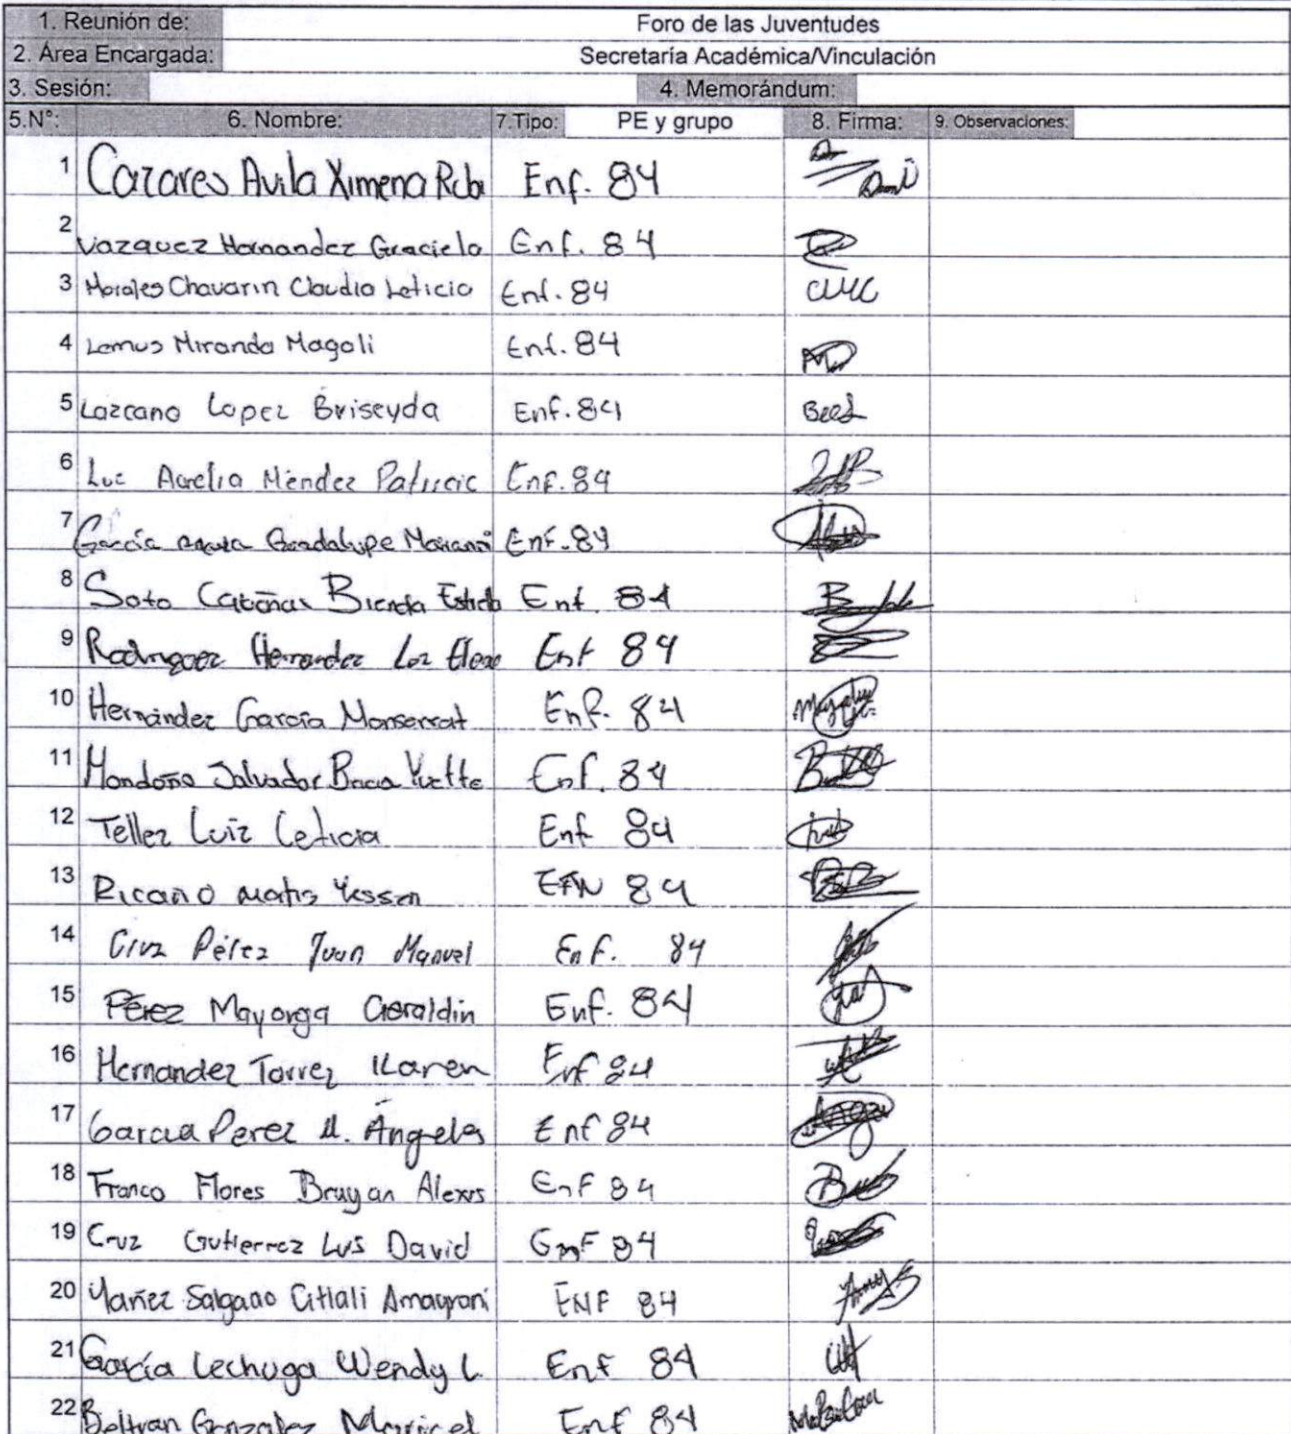 1. Reunión de: Foro de las Juventudes
2. Área Encargada: Secretaría Académica/Vinculación
3. Sesión: 4. Memorándum:
5.N°: 6. Nombre: 7.Tipo: PE y grupo 8. Firma: 9. Observaciones:
1 Cazares Avila Ximena Enf. 84
2 Vazquez Hernandez Graciela Enf. 84
3 Morales Chavarin Claudia Leticia Enf. 84 CMC
4 Lemus Miranda Magali Enf. 84
5 Lazcano Lopez Briseyda Enf. 84
6 Luz Aurelia Méndez Enf. 84
7 García Guadalupe Enf. 84
8 Soto Brenda Enf. 84
9 Rodriguez Hernandez Luz Enf 84
10 Hernández García Monserrat Enf. 84
11 Salvador Yvette Enf. 84
12 Tellez Luiz Leticia Enf 84
13 Ricaño 84
14 Cruz Pérez Juan Manuel Enf. 84
15 Pérez Mayorga Geraldin Enf. 84
16 Hernandez Torrez Karen Enf 84
17 Garcia Perez M. Ángeles Enf 84
18 Franco Flores Brayan Alexis Enf 84
19 Cruz Gutierrez Luis David Enf 84
20 Yañez Salgado Citlali Amayrani ENF 84
21 García Lechuga Wendy L. Enf 84
22 Beltran Gonzalez Maricel Enf 84